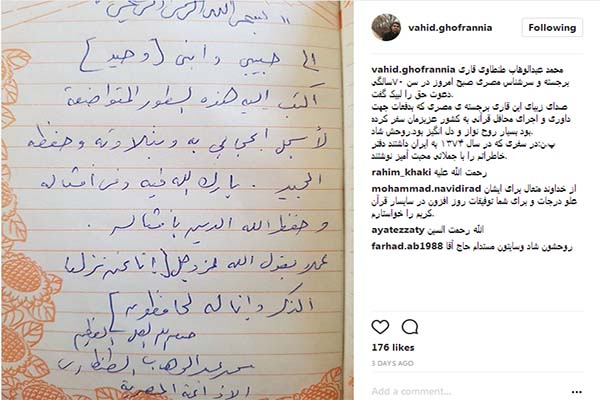 بسم الله الرحمن الرحيم "
إلى حبيبي وابني [وحيد]
اكتب إليه هذه السطور المتواضعة
لأسجل إعجابي به وبتلاوته وحفظه
الجيد . بارك الله فيه وفي أمثاله
وحفظ الله الدين بأمثاله .
عملا بقول الله عز وجل [إنا نحن نزلنا
الذكر وإنا له لحافظون]
صدق الله العظيم
محمد عبد الوهاب الطنطاوي
المصرية
vahid.ghofrannia
Following
vahid.ghofrannia محمد عبدالوهاب طنطاوی قاری
برجسته و سرشناس مصری صبح امروز در سن ۷۰سالگی
دعوت حق را لبیک گفت.
صدای زیبای این قاری برجسته ی مصری که بدفعات جهت
داوری و اجرای محافل قرآنی به کشور عزیزمان سفر کرده
بود بسیار روح نواز و دل انگیز بود.روحش شاد.
پ.ن:در سفری که در سال ۱۳۷۴ به ایران داشتند دفتر
خاطراتم را با جملاتی محبت آمیز نوشتند
rahim_khaki رحمت الله علیه
mohammad.navidirad از خداوند متعال برای ایشان
علو درجات و برای شما توفیقات روز افزون در سایسار قرآن
کریم را خواستارم.
ayatezzaty الله رحمت السین
farhad.ab1988 روحشون شاد وسایتون مستدام حاج آقا
176 likes
3 DAYS AGO
Add a comment...